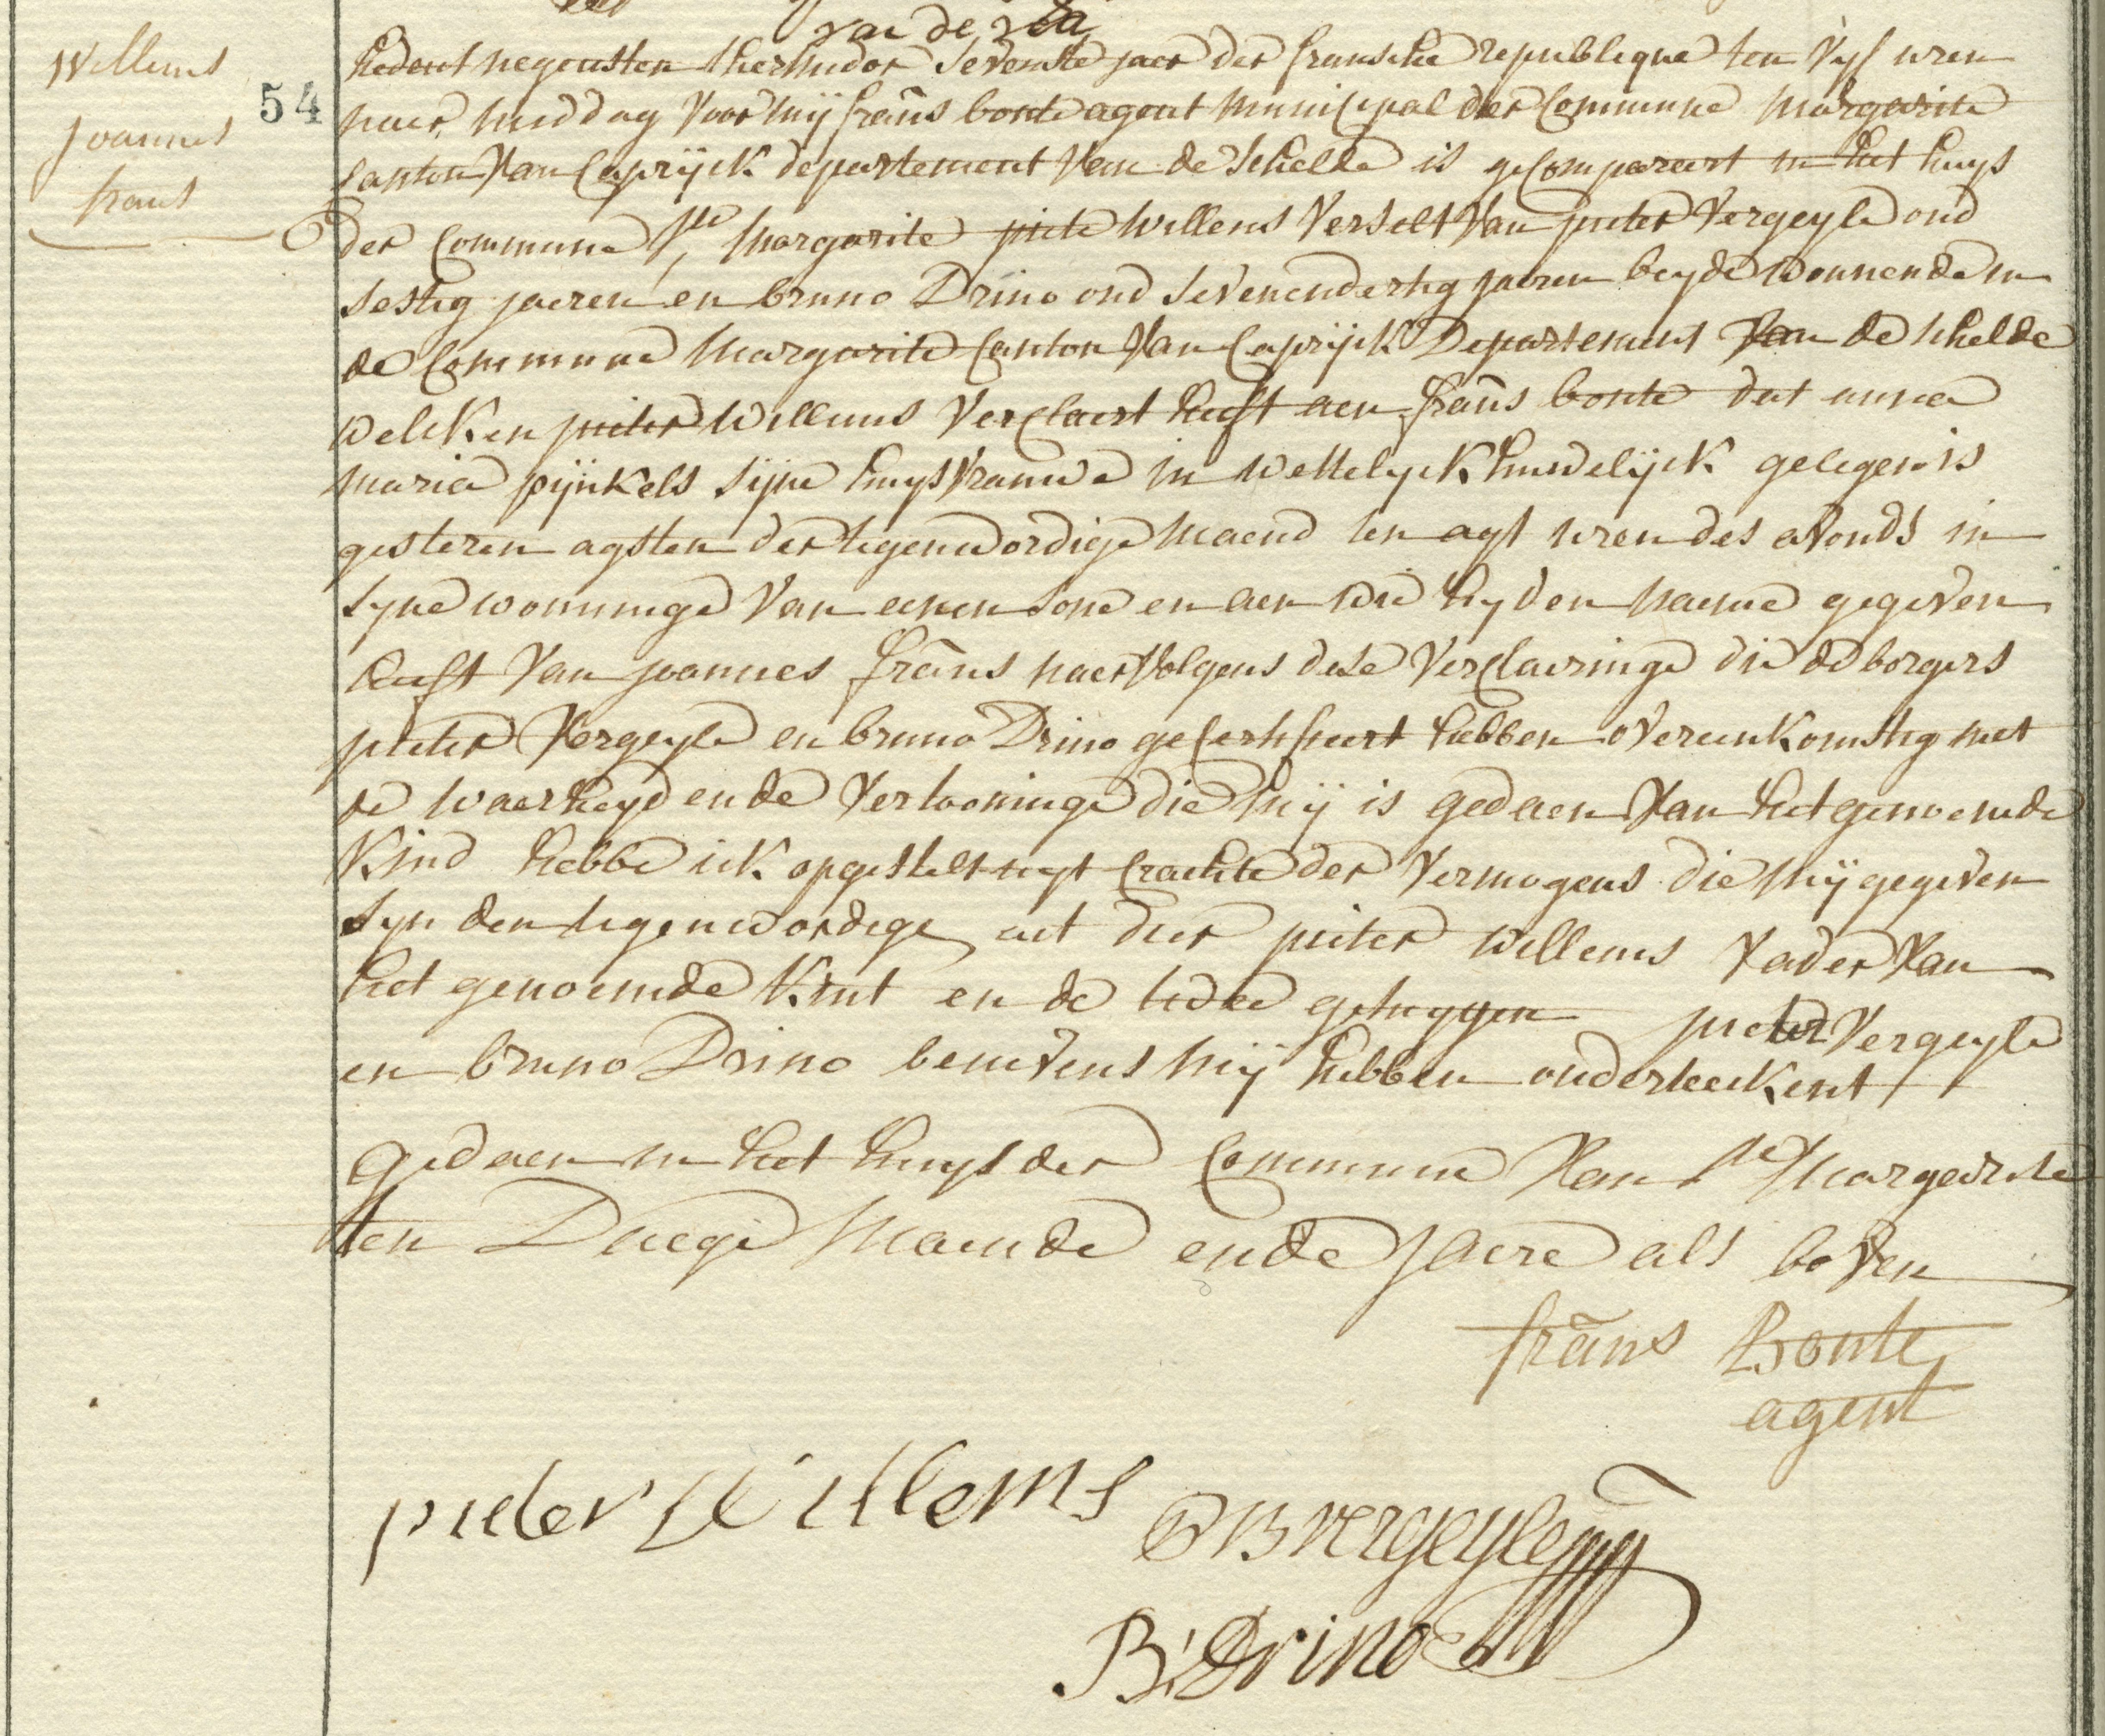 van de
Willems
Joannes
frans
54
hedent negensten thermidor sevenste jaer der fransche republique ten vyf uren
naer middag voor mij frans bonte agent municipal der Commune margarite
Canton van Caprijck departement van de Schelde is gecompareert in het huys
der Commune Ste margarite pieter Willems verselt van pieter Vergeyle oud
sestig jaeren en bruno Drino oud sevenendertig jaeren beyde woonnende in
de Commune margarite Canton van Caprijck Departement van de schelde
welcken pieter Willems Verclaert heeft aen frans bonte dat anna
maria pijnkels sijne huysvrauwe in wettelyck huwelijck gelegen is
gisteren agsten der tegenwordige maend ten agt uren des avonds in
syne wooninge van eenen sone en aen wie hy den naeme gegeven
heeft van joannes frans naervolgens dese verclaeringe die de borgers
pieter Vergeyle en bruno Drino gecertifieert hebben overeenkomstig met
de waerheyd en de vertooninge die mij is gedaen van het genoemde
Kind hebbe ick opgestelt uyt crachte der vermogens die mij gegeven
syn den tegenwordige act dier pieter willems Vader van
het genoemde Kint en de twee getuygen pieter Vergeyle
en bruno Drino benevens mij hebben onderteekent
gedaen in het huys der Commune van Ste Margarite
ten Daege maende ende jaere als boven
frans Bonte
agent
pieter Willems
PB vergeyle
B: Drino